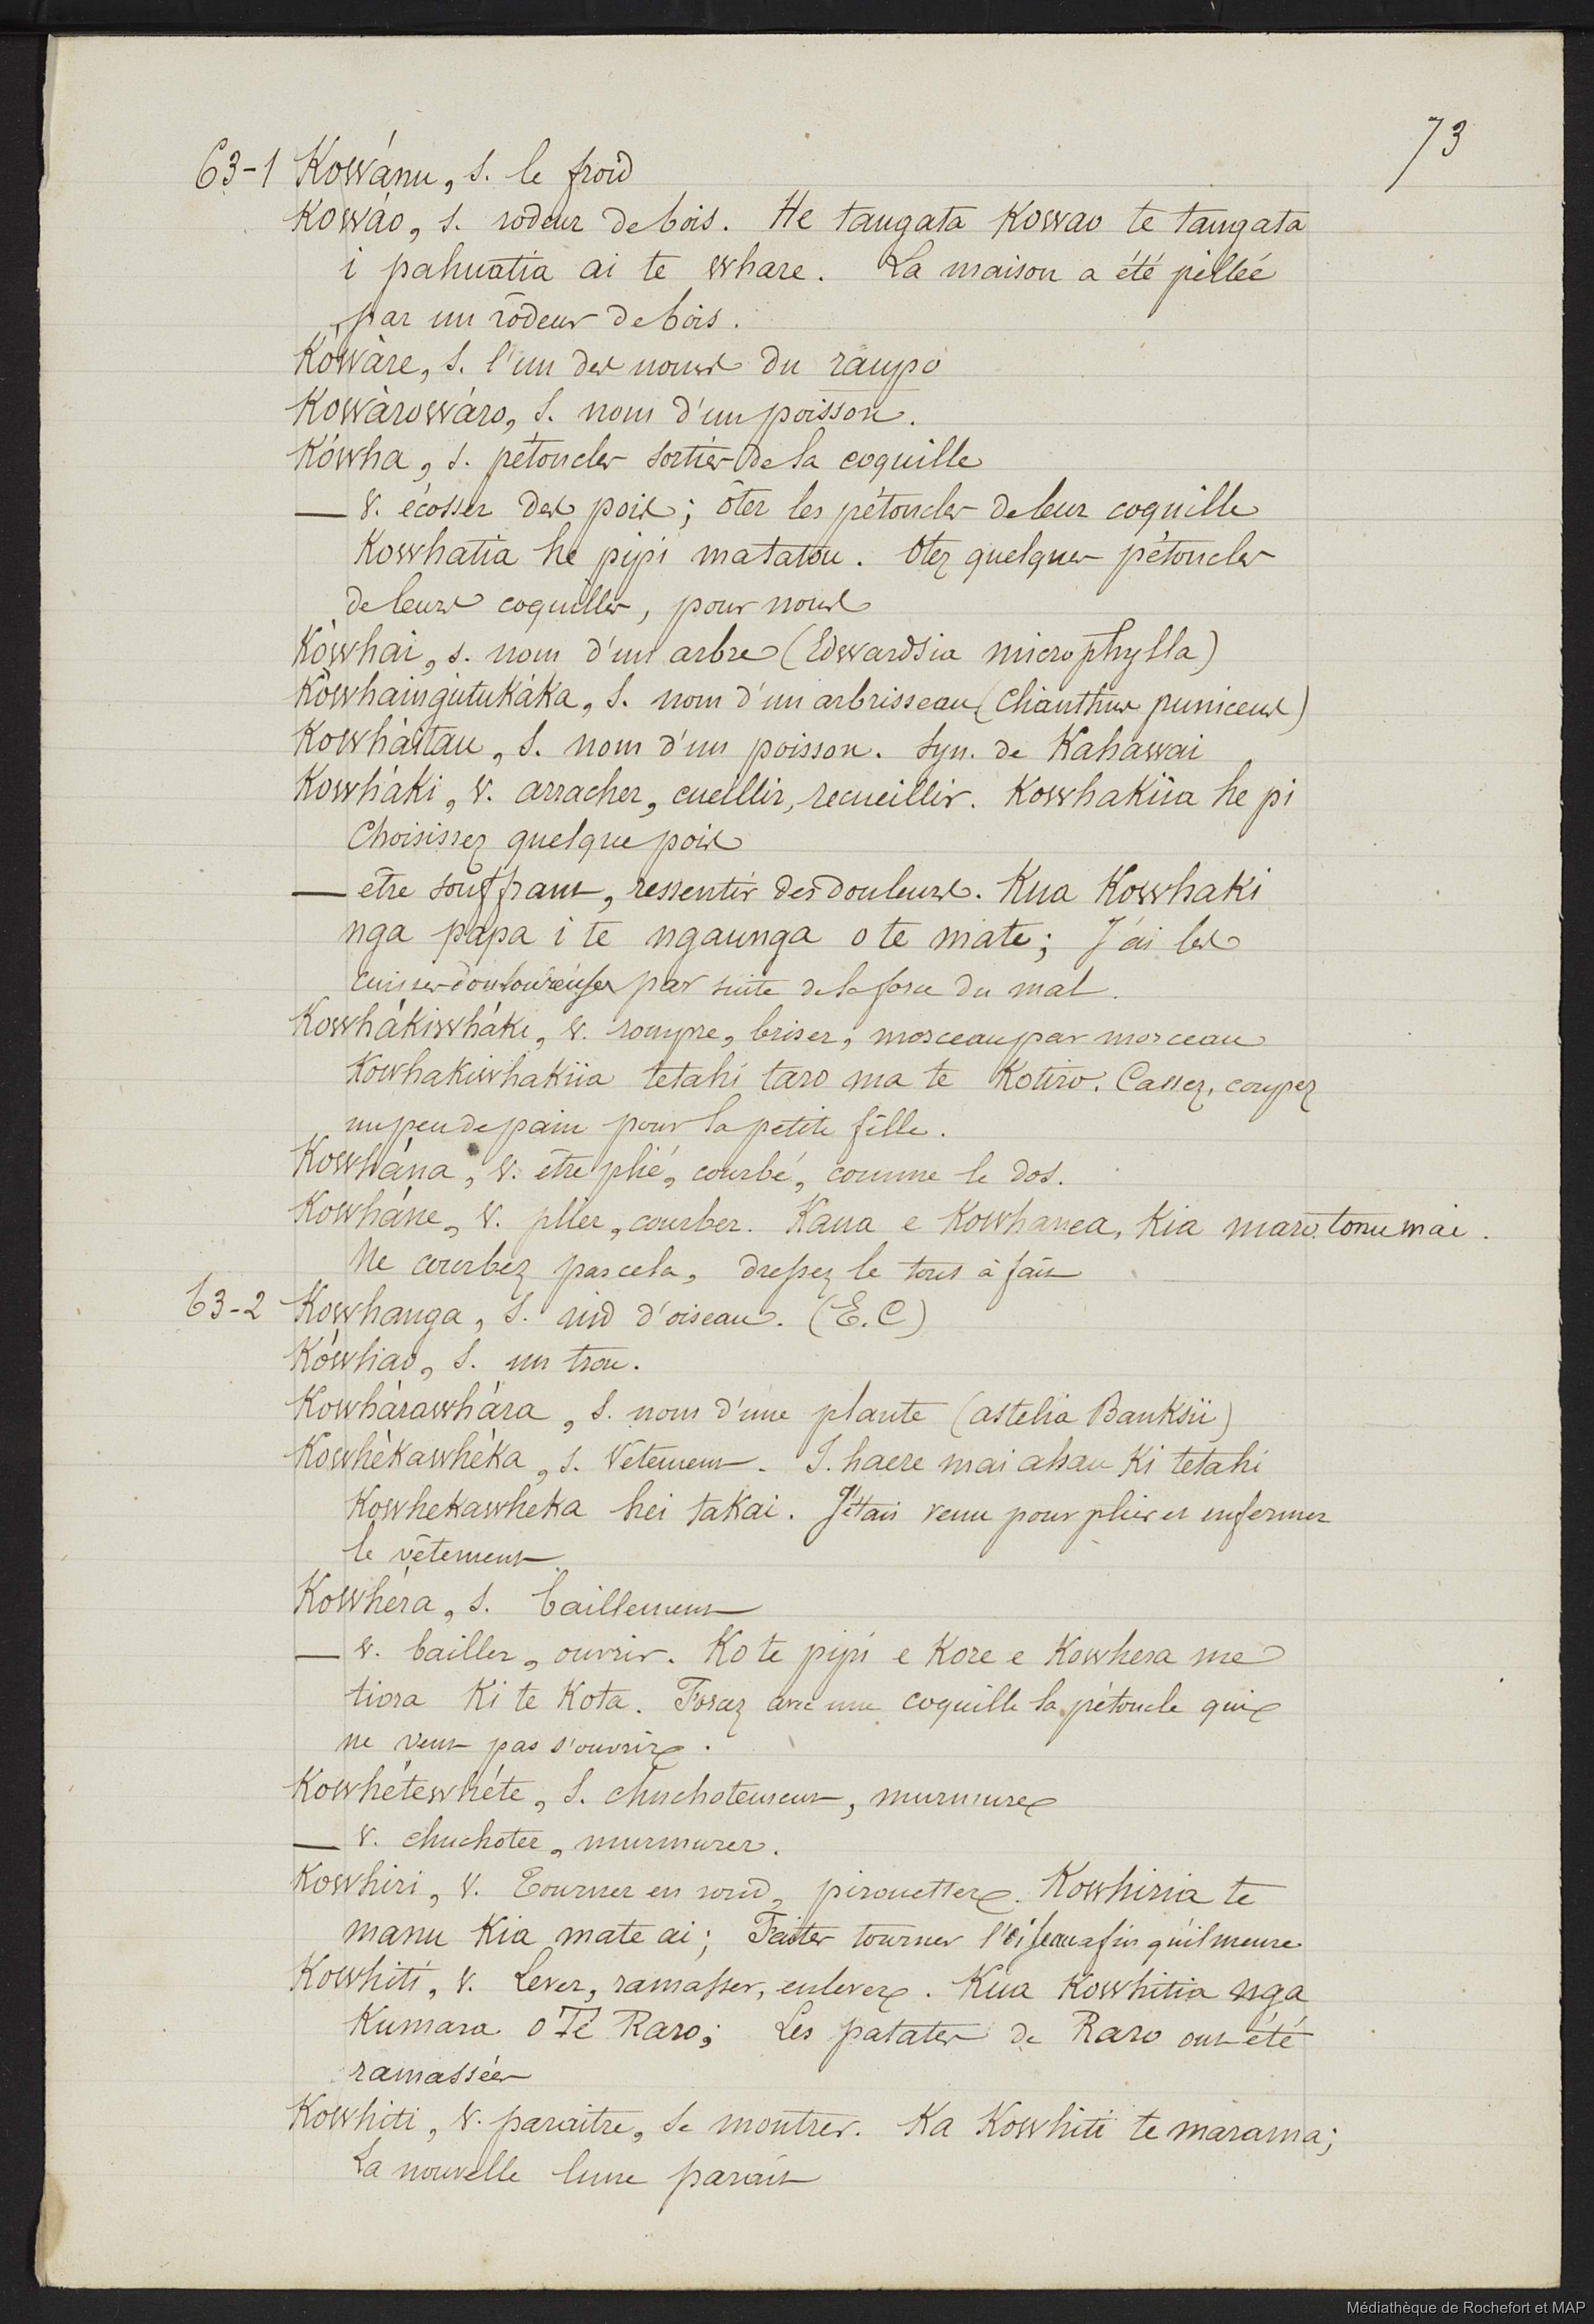 73
63-1 Kowánu, s. le froid
Kowáo, s. rodeur de bois. He tangata Kowao te tangata
i pahuatia ai te whare. La maison a été pillée
par un rôdeur de bois.
Kówàre, s. l'un des noms du raupo
Kowàrowáro, s. nom d'un poisson.
Kówha, s. pétoncles sorties de la coquille
— v. écosser des pois; ôter les pétoncles de leur coquille
Kowhatia he pipi matatou. Otez quelques pétoncles
de leurs coquilles, pour nous
Kòwhai, s. nom d'un arbre (Edwardsia microphylla)
Kòwhaingutukáka, s. nom d'un arbrisseau (Clianthus puniceus)
Kowhàitau, s. nom d'un poisson. syn. de Kahawai
Kowháki, v. arracher, cueillir, recueillir. Kowhakiia he pi
Choisissez quelque pois
— etre souffrant, ressentir des douleurs. Kua Kowhaki
nga papa i te ngaunga o te mate; J'ai les
cuisses douloureuses par suite de la force du mal.
Kowhákiwháki, v. rompre, briser, morceau par morceau
Kowhakiwhakiia tetahi taro ma te Kotiro. Cassez, coupez
un peu de pain pour la petite fille.
Kowhána, v. etre plié, courbé, comme le dos.
Kowháne, v. plier, courber. Kaua e Kowhanea, Kia maro tonu mai.
Ne courbez pas cela, dressez le tout à fait
63-2 Kowhanga, s. nid d'oiseau. (E.C)
Kówhao, s. un trou.
Kowhàrawhára, s. nom d'une plante (astelia Banksii)
Kowhèkawhéka, s. Vetement. I. haere mai ahau Ki tetahi
Kowhekawheka hei takai. J'étais venu pour plier et enfermer
le vêtement
Kowhéra, s. baillement
— v. bailler, ouvrir. Ko te pipi e Kore e Kowhera me
tiora Ki te Kota. Forcez avec une coquille la pétoncle qui
ne veut pas s'ouvrir.
Kowhétewhéte, s. chuchotement, murmure
— v. chuchoter, murmurer.
Kowhiri, v. Tourner en rond, pirouetter. Kowhiria te
manu Kia mate ai; Faites tourner l'oiseau afin qu'il meure
Kowhiti, v. Lever, ramasser, enlever. Kua Kowhitia nga
Kumara o Te Raro; Les patates de Raro ont été
ramassées
Kowhiti, v. paraitre, se montrer. Ka Kowhiti te marama;
La nouvelle lune parait
Médiathèque de Rochefort et MAP